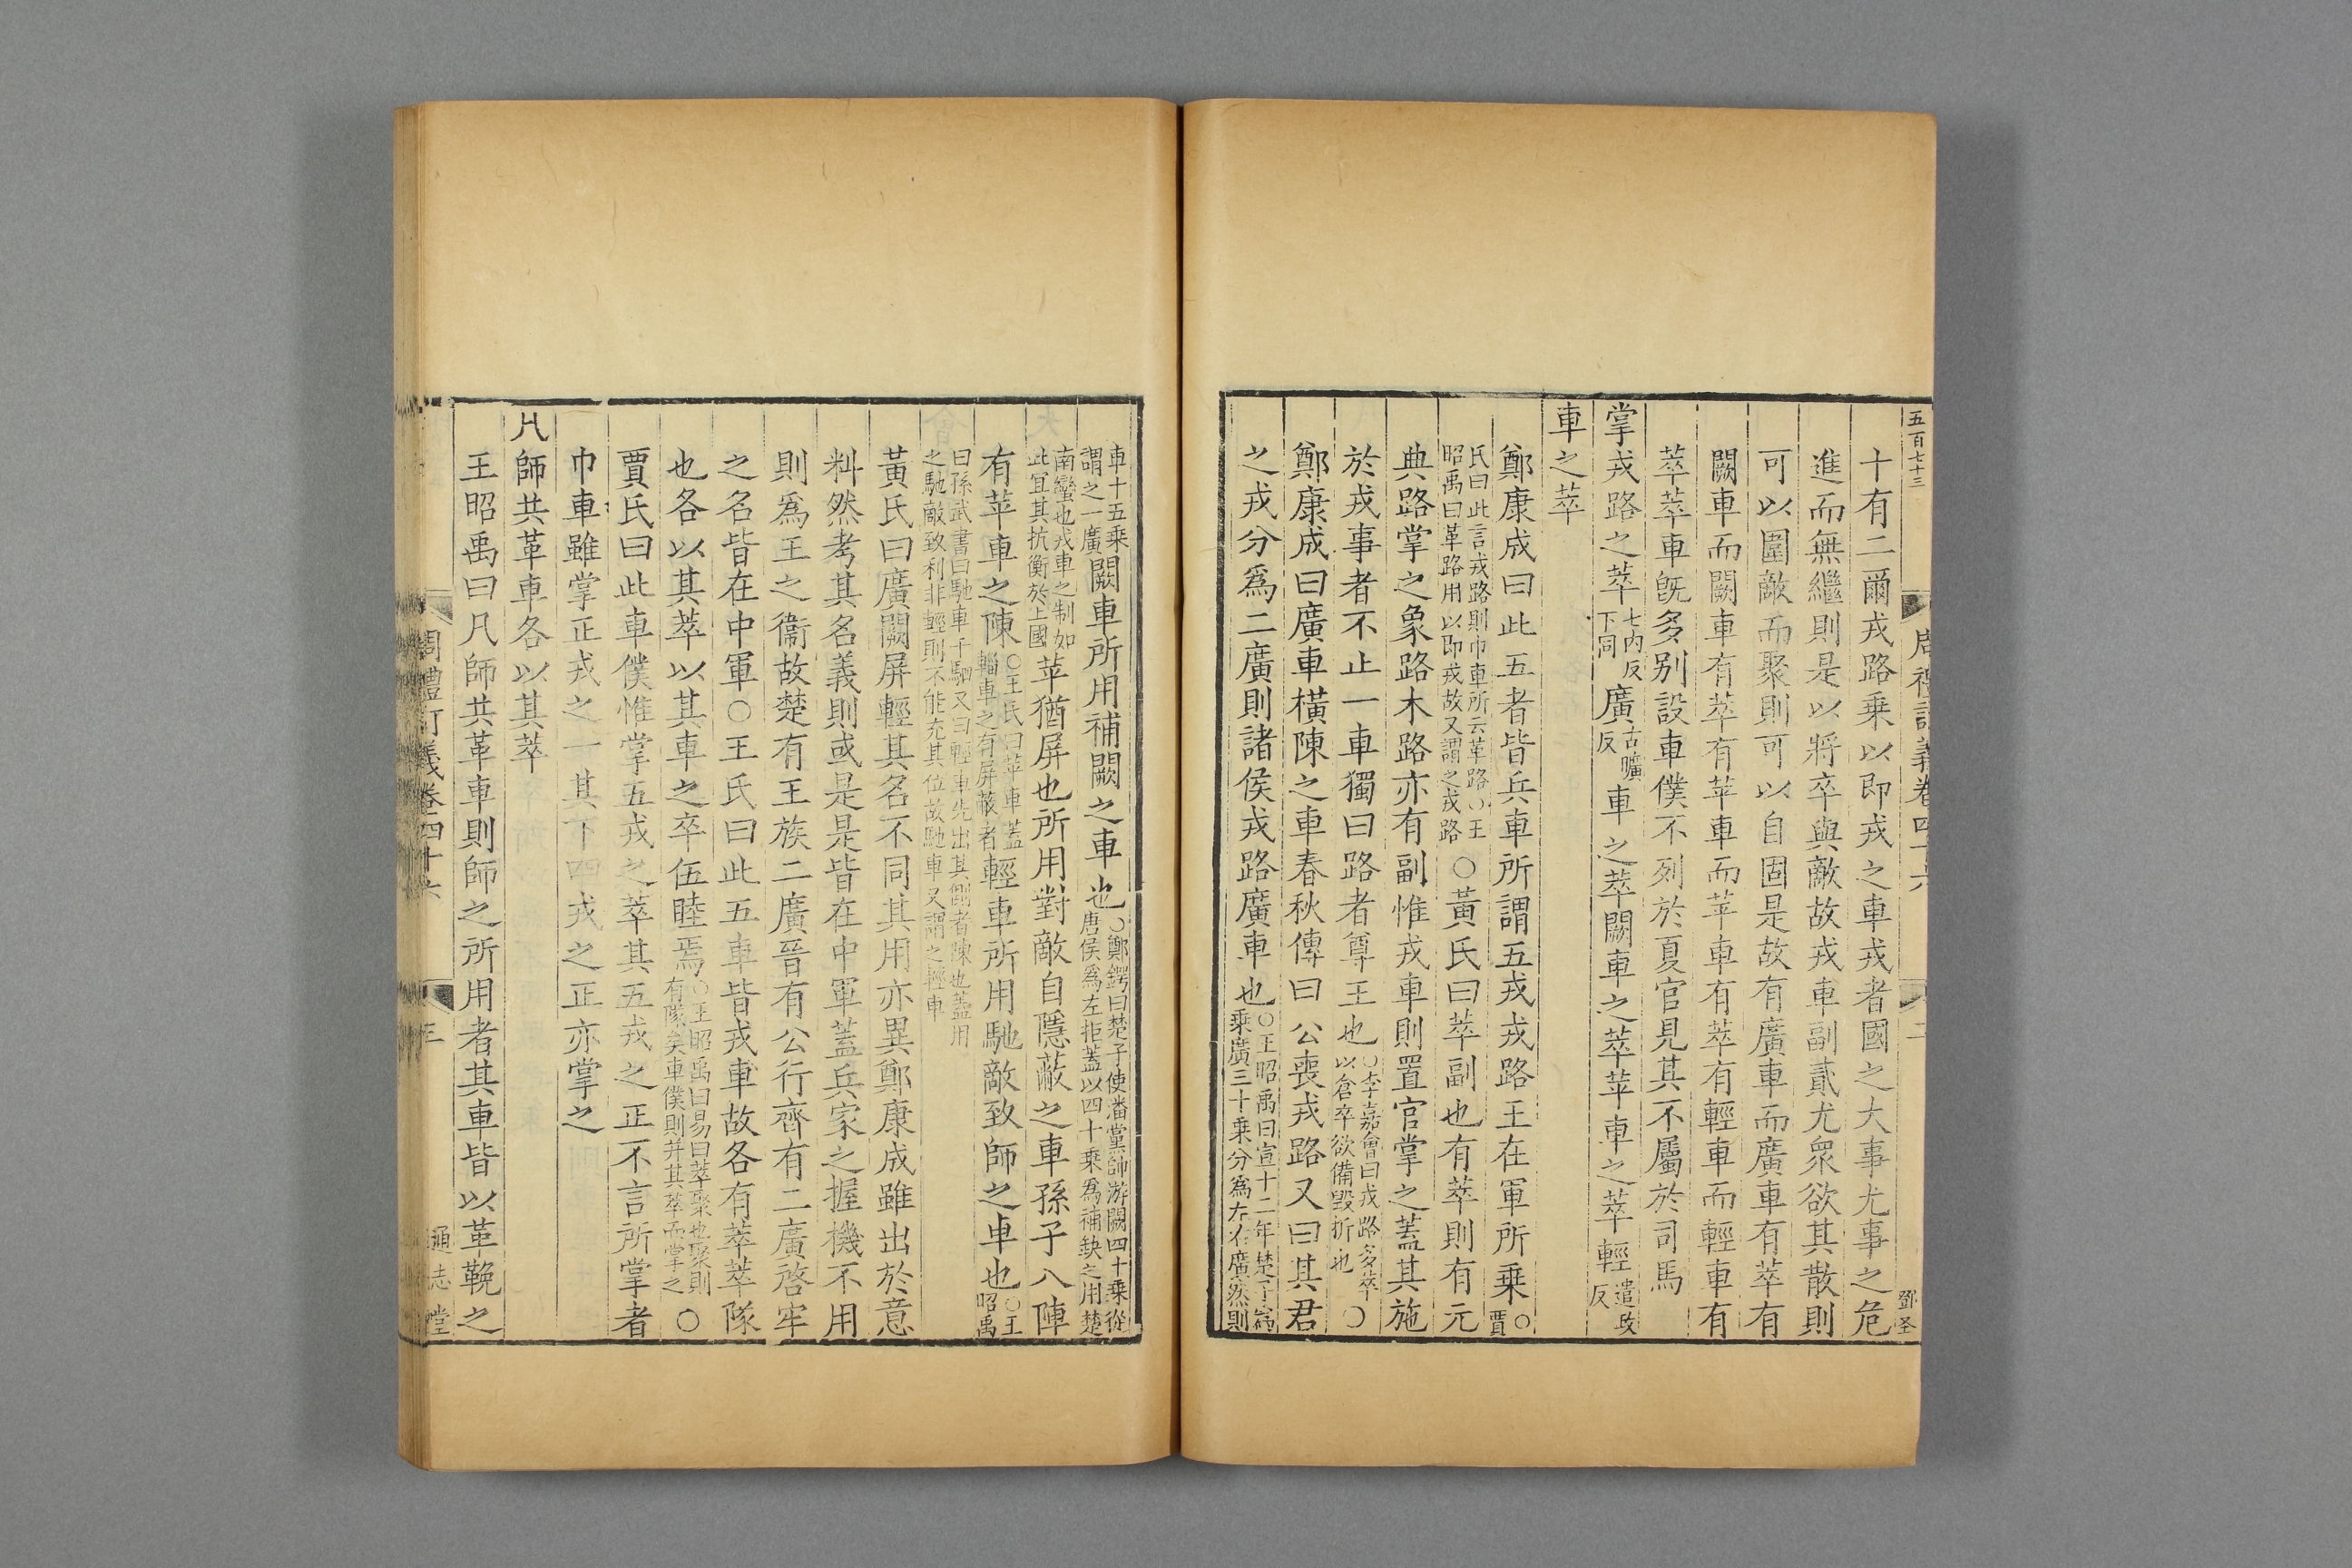 五百七十三
周禮訂義卷四十六
二
鄧圣
十有二爾戎路乗以即戎之車戎者國之大事尤事之危
進而無繼則是以將卒與敵故戎車副貳尤衆欲其散則
可以圍敵而聚則可以自固是故有廣車而廣車有萃有
闕車而闕車有萃有苹車而苹車有萃有輕車而輕車有
萃萃車旣多别設車僕不列於夏官見其不屬於司馬
掌戎路之萃七内反下同廣古曠反車之萃闕車之萃苹車之萃輕遣政反
車之萃
鄭康成曰此五者皆兵車所謂五戎戎路王在軍所乗○賈
氏曰此言戎路則巾車所云革路○王昭禹曰革路用以即戎故又謂之戎路○黃氏曰萃副也有萃則有元
典路掌之象路木路亦有副惟戎車則置官掌之蓋其施
於戎事者不止一車獨曰路者尊王也○李嘉會曰戎路多萃以倉卒欲備毀折也○
鄭康成曰廣車橫陳之車春秋傳曰公喪戎路又曰其君
之戎分爲二廣則諸侯戎路廣車也○王昭禹曰宣十二年楚子爲乗廣三十乗分爲左右廣然則
車十五乗謂之一廣闕車所用補闕之車也○鄭鍔曰楚子使潘黨帥游闕四十乗從唐侯爲左拒蓋以四十乗爲補缺之用楚
南蠻也戎車之制如此宜其抗衡於上國苹猶屏也所用對敵自隱蔽之車孫子八陣
有苹車之陳○王氏曰苹車蓋輜車之有屏蔽者輕車所用馳敵致師之車也○王昭禹
曰孫武書曰馳車千駟又曰輕車先出其側者陳也蓋用之馳敵致利非輕則不能充其位故馳車又謂之輕車
黃氏曰廣闕屏輕其名不同其用亦異鄭康成雖出於意
料然考其名義則或是是皆在中軍蓋兵家之握機不用
則爲王之衞故楚有王族二廣晉有公行齊有二廣啓牢
之名皆在中軍○王氏曰此五車皆戎車故各有萃萃隊
也各以其萃以其車之卒伍睦焉○王昭禹曰易曰萃聚也聚則有隊矣車僕則幷其萃而掌之○
賈氏曰此車僕惟掌五戎之萃其五戎之正不言所掌者
巾車雖掌正戎之一其下四戎之正亦掌之
凡師共革車各以其萃
王昭禹曰凡師共革車則師之所用者其車皆以革鞔之
周禮訂義卷四十六
三
通志堂